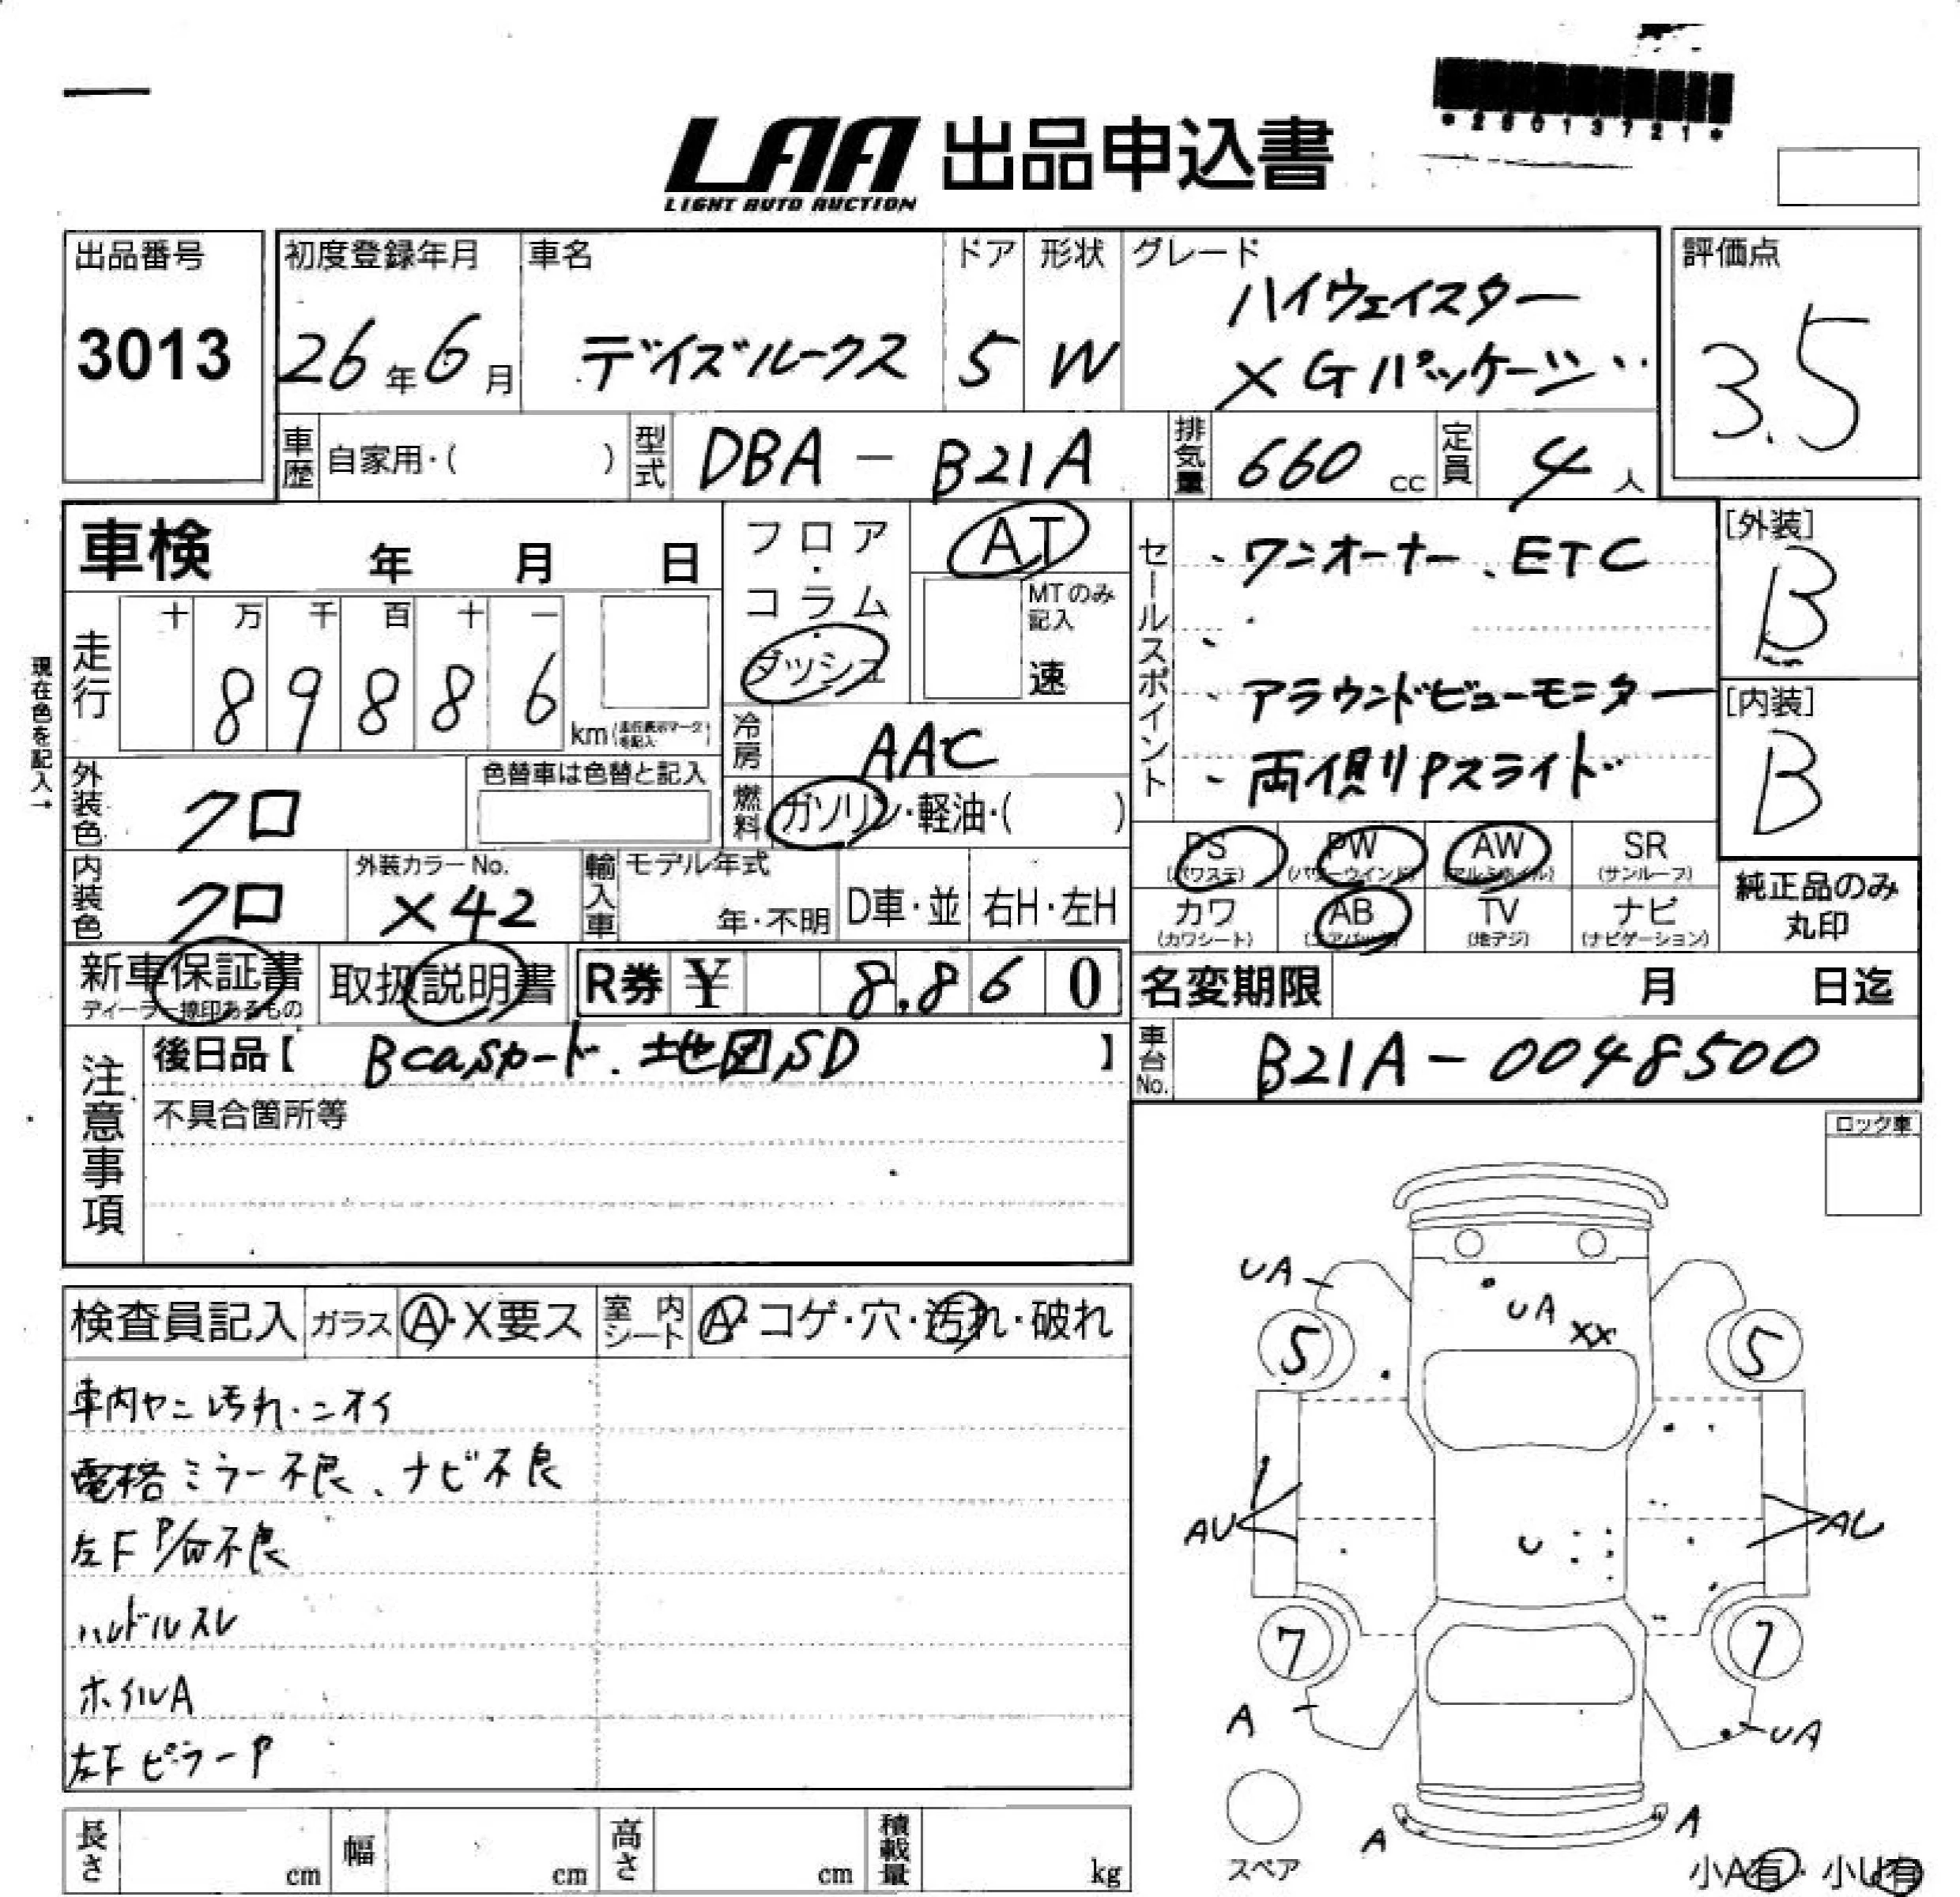 *28013721*
LAA 出品申込書
LIGHT AUTO AUCTION
出品番号 初度登録年月 車名 ドア 形状 グレード 評価点
3013 26年6月 デイズルークス 5 W ハイウェイスター
XGパッケージ 3.5
車歴 自家用・( ) 型式 DBA-B21A 排気量 660cc 定員 4人
車検 年 月 日 フロア・コラム・ダッシュ AT
MTのみ記入 速
セールスポイント
・ワンオーナー、ETC
・
・アラウンドビューモニター
・両側Pスライド
[外装]
B
[内装]
B
現在色を記入→
走行 十 万 千 百 十 一
8 9 8 8 6 km(走行表示マークを記入)
冷房 AAC
外装色 クロ 色替車は色替と記入
燃料 ガソリン・軽油・( )
内装色 クロ 外装カラーNo. X42 輸入車 モデル年式 年・不明 D車・並 右H・左H
PS (パワステ) PW (パワーウインド) AW (アルミホイル) SR (サンルーフ)
カワ (カワシート) AB (エアバッグ) TV (地デジ) ナビ (ナビゲーション)
純正品のみ
丸印
新車保証書 取扱説明書 R券 ¥ 8,860
ディーラー捺印あるもの
名変期限 月 日迄
注意事項
後日品【 Bcasカード.地図SD 】
車台No. B21A-0048500
不具合箇所等
ロック車
検査員記入 ガラス A・X要ス 室内シート A・コゲ・穴・汚れ・破れ
車内ヤニ汚れ・ニオイ
電格ミラー不良、ナビ不良
左F P/W不良
ハンドルスレ
ホイルA
左FピラーP
UA
UA
XX
5 5
AU AU
U
7 7
A UA
スペア
A A
小A有・小U有
長さ cm 幅 cm 高さ cm 積載量 kg